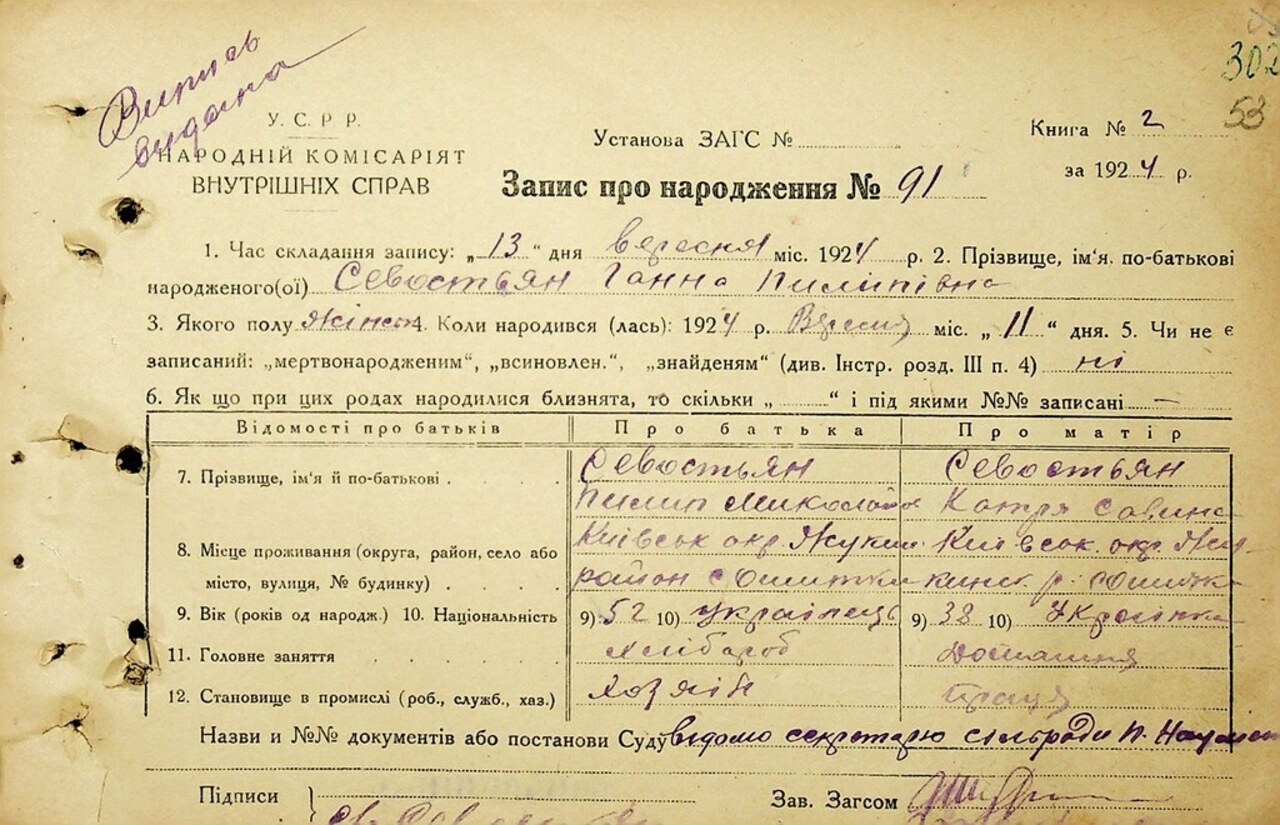 Випись
видана
302
53
У. С. Р Р.
НАРОДНІЙ КОМІСАРІЯТ
ВНУТРІШНІХ СПРАВ
Установа ЗАГС №
Книга № 2
за 1924 р.
Запис про народження № 91
1. Час складання запису: „13“ дня вересня міс. 1924 р. 2. Прізвище, ім'я. по-батькові
народженого(ої) Севостьян Ганна Пилипівна
3. Якого полу жіноч 4. Коли народився (лась): 1924 р. Вересня міс. „11“ дня. 5. Чи не є
записаний: „мертвонародженим“, „всиновлен.“, „знайденям“ (див. Інстр. розд. III п. 4) ні
6. Як що при цих родах народилися близнята, то скільки „ “ і під якими №№ записані —
Відомості про батьків Про батька Про матір
7. Прізвище, ім'я й по-батькові Севостьян Севостьян
Пилип Миколайов Катря Савина
8. Місце проживання (округа, район, село або Київськ окр. Жукин Київськ. окр. Жу-
місто, вулиця, № будинку) район с Ошитки кинс р. с Ошитки
9. Вік (років од народж.) 10. Національність 9) 52 10) українець 9) 38 10) Українка
11. Головне заняття Хлібороб Домашня
12. Становище в промислі (роб., служб., хаз.) Хозяїн праця
Назви и №№ документів або постанови Суду відомо секретарю сільради П.
Підписи
Зав. Загсом